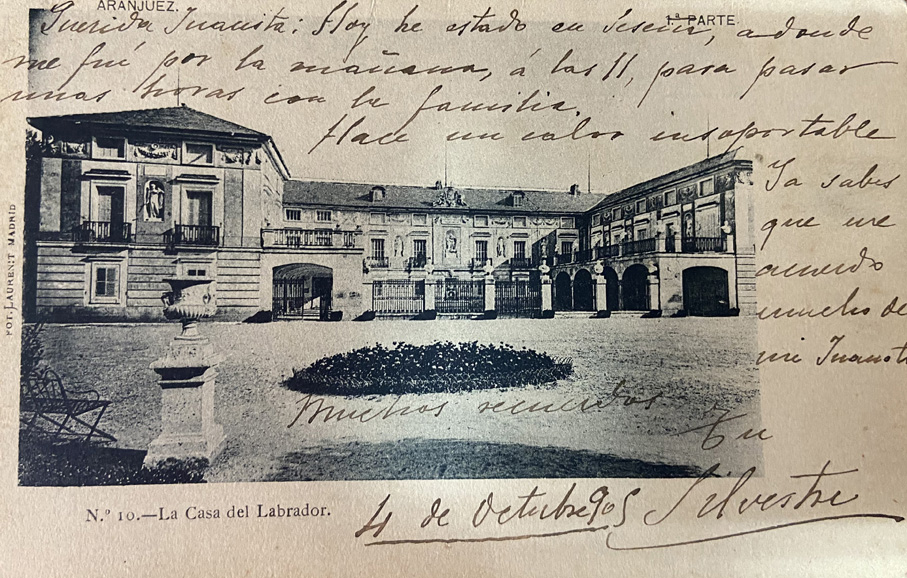 ARANJUEZ.
1.ª PARTE.
Querida Juanita: Hoy he estado en Seseña, adonde
me fuí por la mañana, á las 11, para pasar
unas horas con la familia.
Hace un calor insoportable
Ya sabes
que me
acuerdo
mucho de
mi Juanita
FOT. LAURENT MADRID
Muchos recuerdos de
Tu
Silvestre
4 de Octubre 905
N.º 10.—La Casa del Labrador.